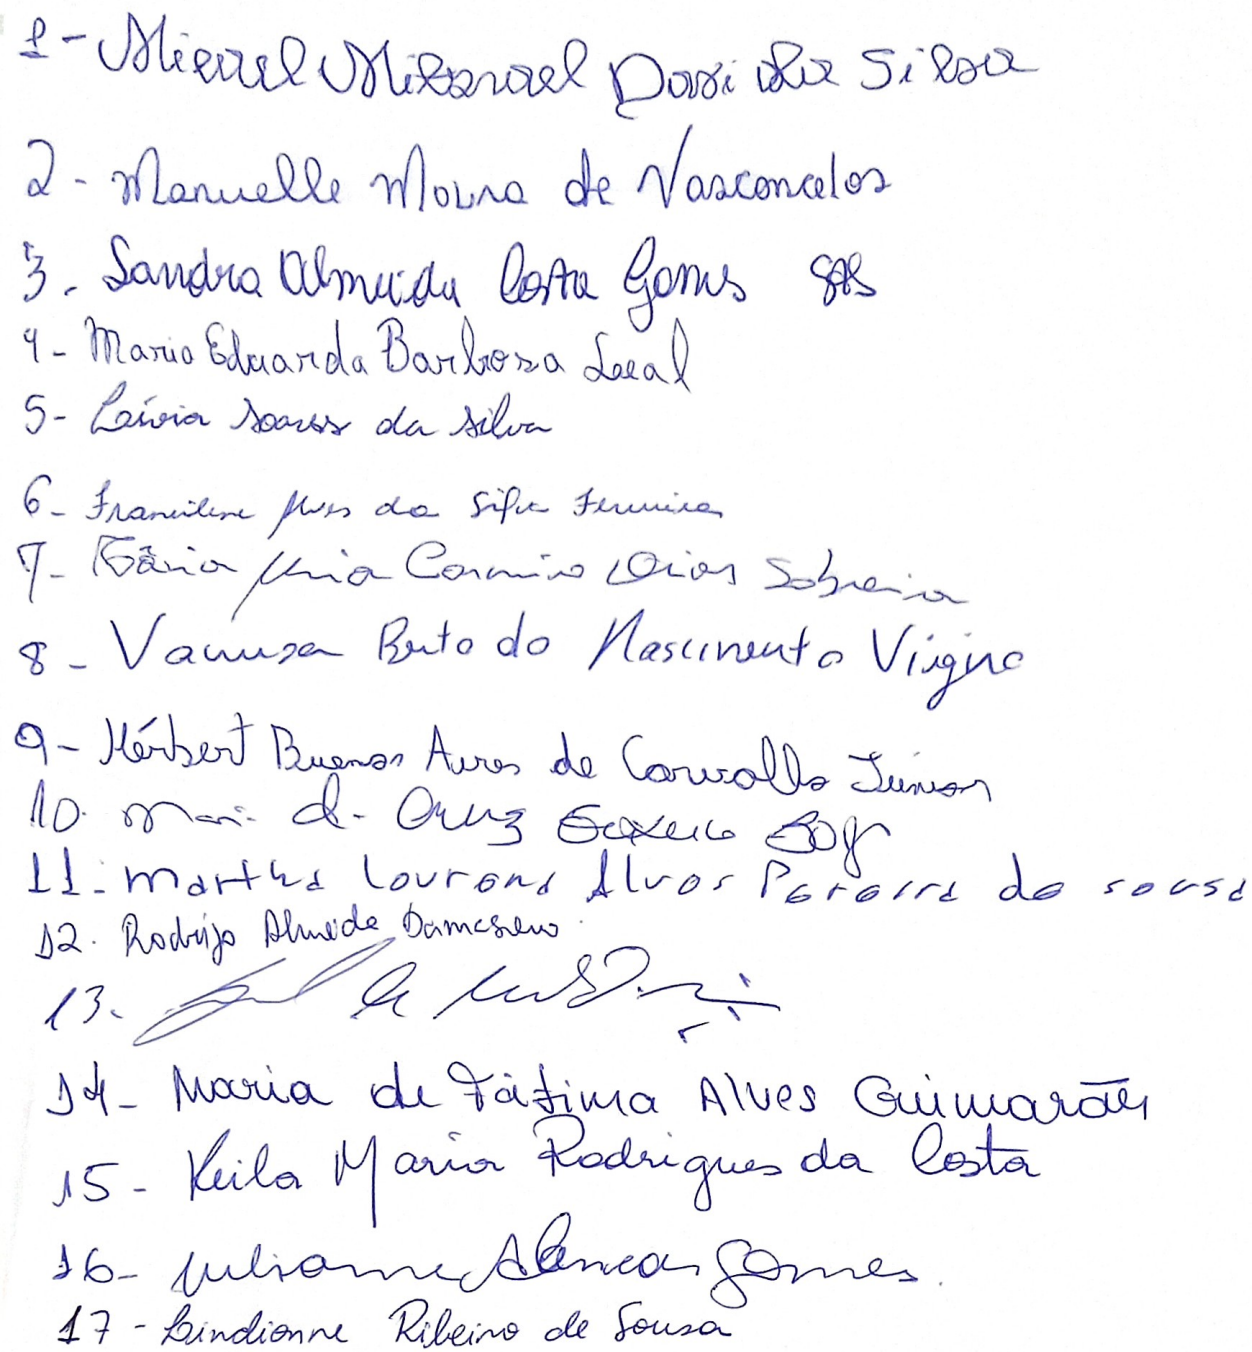 1- Mizael Mizarael Davi da Silva
2- Manuelle Moura de Vasconcelos
3. Sandra Almeida Costa Gomes
4- Maria Eduarda Barbosa Leal
5- Lívia Soares da Silva
6- Francilene Alves da Silva Ferreira
7- Tânia Maria Carmino Dias Sobreira
8- Vanusa Brito do Nascimento Virgino
9- Hérbert Buenos Aires de Carvalho Júnior
10. Cruz
11- Martha Lourena Alves Pereira de Sousa
12. Rodrigo Almeida Damasceno
13.
14- Maria de Fátima Alves Guimarães
15- Keila Maria Rodrigues da Costa
16- Julianne Alencar Gomes
17- Lindianne Ribeiro de Sousa